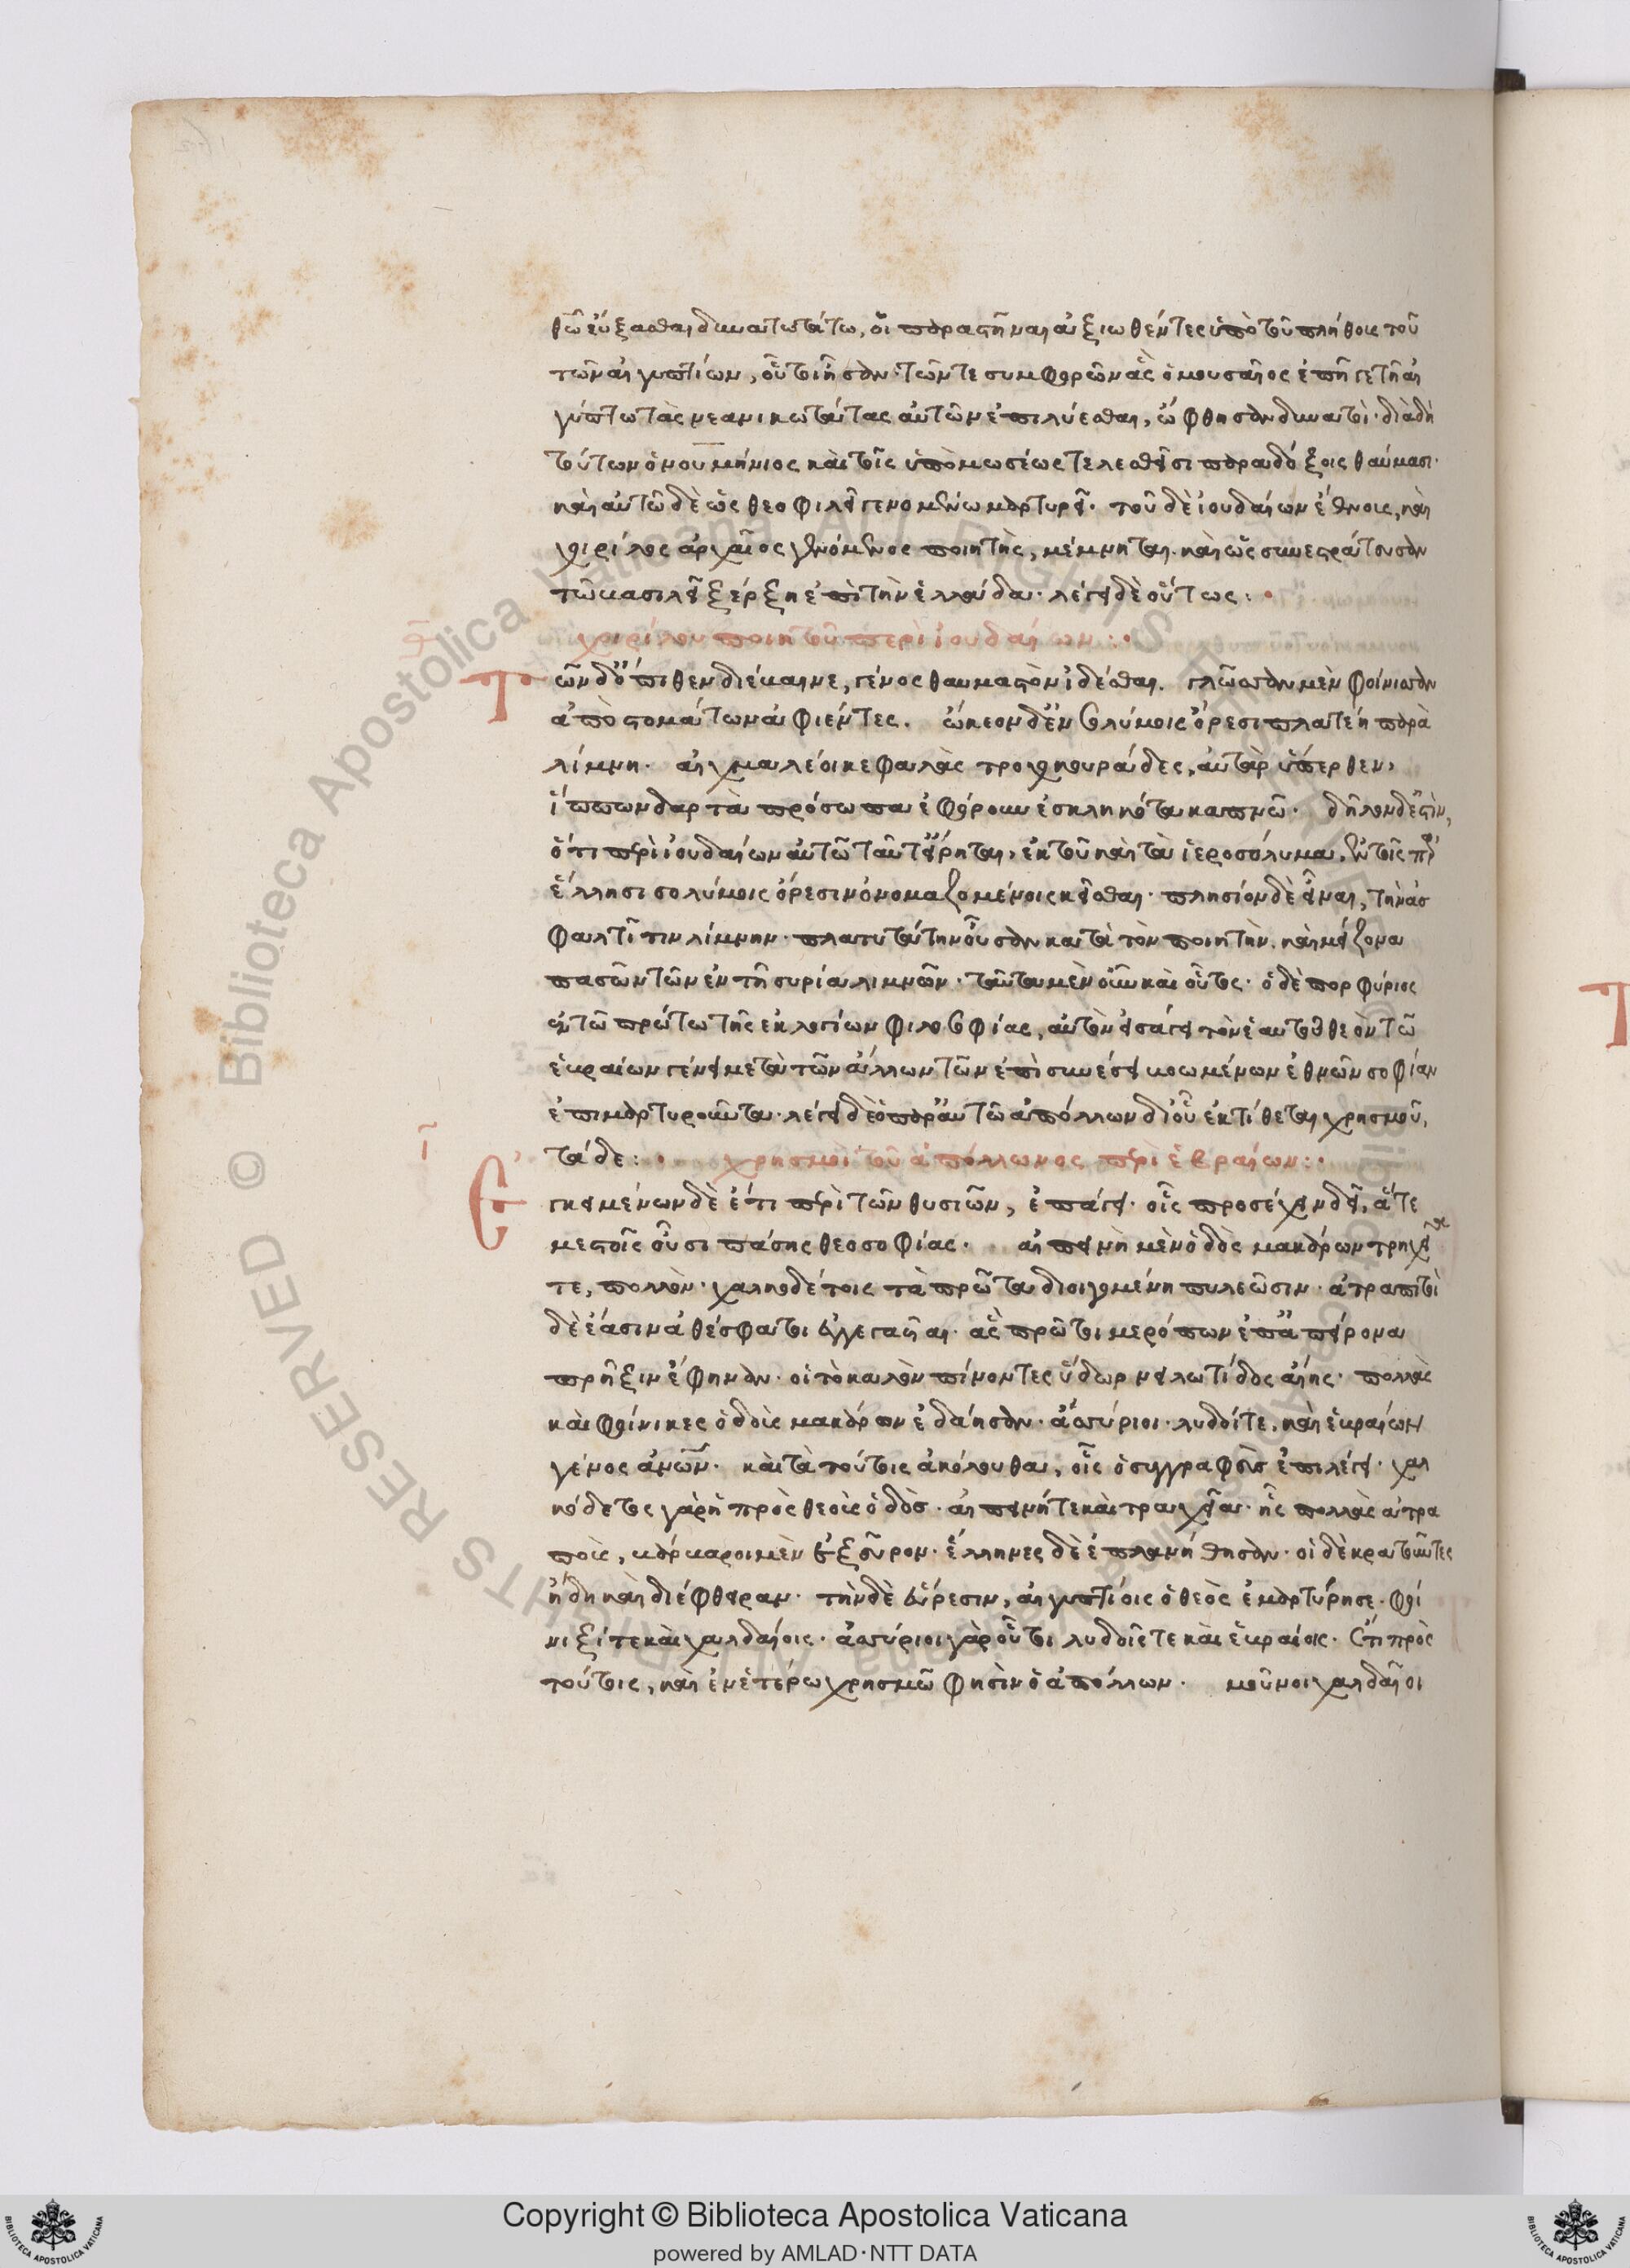 θῶ εὔξασθαι δυνατωτάτω, οἳ παραστῆναι ἀξιωθέντες ὑπὸ τοῦ πλήθους τοῦ
τῶν αἰγυπτίων, οὗτοι ἦσαν· τῶν τε συμφορῶν ἃς ὁ μουσαῖος ἐπῆγε τῆ αἰ
γύπτω τὰς νεανικωτάτας αὐτῶν ἐπιλύεσθαι, ὤφθησαν δυνατοί· διὰ δὴ
τούτων ὁ νουμήνιος καὶ τοῖς ὑπὸ μωσέως τελεσθεῖσι παραδόξοις θαύμασι·
καὶ αὐτῶ δὲ ὡς θεοφιλεῖ γενομένω μαρτυρεῖ· τοῦ δὲ ἰουδαίων ἔθνους, καὶ
χιρίλος ἀρχαῖος γενόμενος ποιητὴς, μέμνηται· καὶ ὡς συνεστράτουσαν
τῶ βασιλεῖ ξέρξη ἐπὶ τὴν ἑλλάδα· λέγει δὲ οὕτως:
χιρίλου ποιητοῦ περὶ ἰουδαίων:
Τῶν δ' ὄπιθεν διέβαινε, γένος θαυμαστὸν ἰδέσθαι. γλῶσσαν μὲν φοίνισσαν
ἀπὸ στομάτων ἀφιέντες. ὤκεον δ' ἐν σολύμοις ὄρεσι πλατέη παρὰ
λίμνη. αὐχμαλέοι κεφαλὰς τροχοκουράδες, αὐτὰρ ὕπερθεν,
ἵππων δαρτὰ πρόσωπα ἐφόρουν ἐσκληκότα καπνῶ· δῆλον δ' ἐστὶν,
ὅτι περὶ ἰουδαίων αὐτῶ ταῦτ' εἴρηται, ἐκ τοῦ καὶ τὰ ἱεροσόλυμα, ἐν τοῖς παρ'
ἕλλησι σολύμοις ὄρεσιν ὀνομαζομένοις κεῖσθαι· πλησίον δὲ εἶναι, τὴν ἀσ
φαλτῖτιν λίμνην· πλατυτάτην οὖσαν κατὰ τὸν ποιητὴν· καὶ μείζονα
πασῶν τῶν ἐν τῆ συρία λιμνῶν· ταῦτα μὲν οὖν καὶ οὗτος· ὁ δὲ πορφύριος
ἐν τῶ πρώτω τῆς ἐκ λογίων φιλοσοφίας, αὐτὸν εἰσάγει τὸν ἑαυτοῦ θεὸν τῶ
ἑβραίων γένει μετὰ τῶν ἄλλων τῶν ἐπὶ συνέσει βοωμένων ἐθνῶν σοφίαν
ἐπιμαρτυροῦντα· λέγει δὲ ὁ παρ' αὐτῶ ἀπόλλων δι' οὗ ἐκτίθεται χρησμοῦ,
τάδε: χρησμοὶ τοῦ ἀπόλλωνος περὶ ἑβραίων:
Ἐγκειμένων δὲ ἔτι περὶ τῶν θυσιῶν, ἐπάγει· οἷς προσέχειν δεῖ, ἅτε
μεστοῖς οὖσι πάσης θεοσοφίας. αἰπεινὴ μὲν ὁδὸς μακάρων τρηχεῖα
τε, πολλὸν· χαλκοδέτοις τὰ πρῶτα διοιγομένη πυλεῶσιν· ἀτραπιτοὶ
δὲ ἔασιν ἀθέσφατοι ἐγγεγαῆαι· ἃς πρῶτοι μερόπων ἐπ' ἀπείρονα
πρῆξιν ἔφηναν· οἱ τὸ καλὸν πίνοντες ὕδωρ νειλώτιδος αἴης· πολλὰς
καὶ φοίνικες ὁδοὺς μακάρων ἐδάησαν· ἀσσύριοι· λυδοί τε, καὶ ἑβραίων
γένος ἀνδρῶν· καὶ τὰ τούτοις ἀκόλουθα, οἷς ὁ συγγραφεὺς ἐπιλέγει· χαλ
κόδετος γὰρ ἡ πρὸς θεοὺς ὁδὸς· αἰπεινή τε καὶ τραχεῖα· ἧς πολλὰς ἀτρα
ποὺς, βάρβαροι μὲν ἐξεῦρον· ἕλληνες δὲ ἐπλανήθησαν· οἱ δὲ κρατοῦντες
ἤδη καὶ διέφθειραν· τὴν δὲ εὕρεσιν, αἰγυπτίοις ὁ θεὸς ἐμαρτύρησε· φοί
νιξί τε καὶ χαλδαίοις· ἀσσύριοι γὰρ οὗτοι λυδοῖς τε καὶ ἑβραίοις. ἔτι πρὸς
τούτοις, καὶ ἐν ἑτέρω χρησμῶ φησὶν ὁ ἀπόλλων. μοῦνοι χαλδαῖοι
Copyright © Biblioteca Apostolica Vaticana
powered by AMLAD·NTT DATA